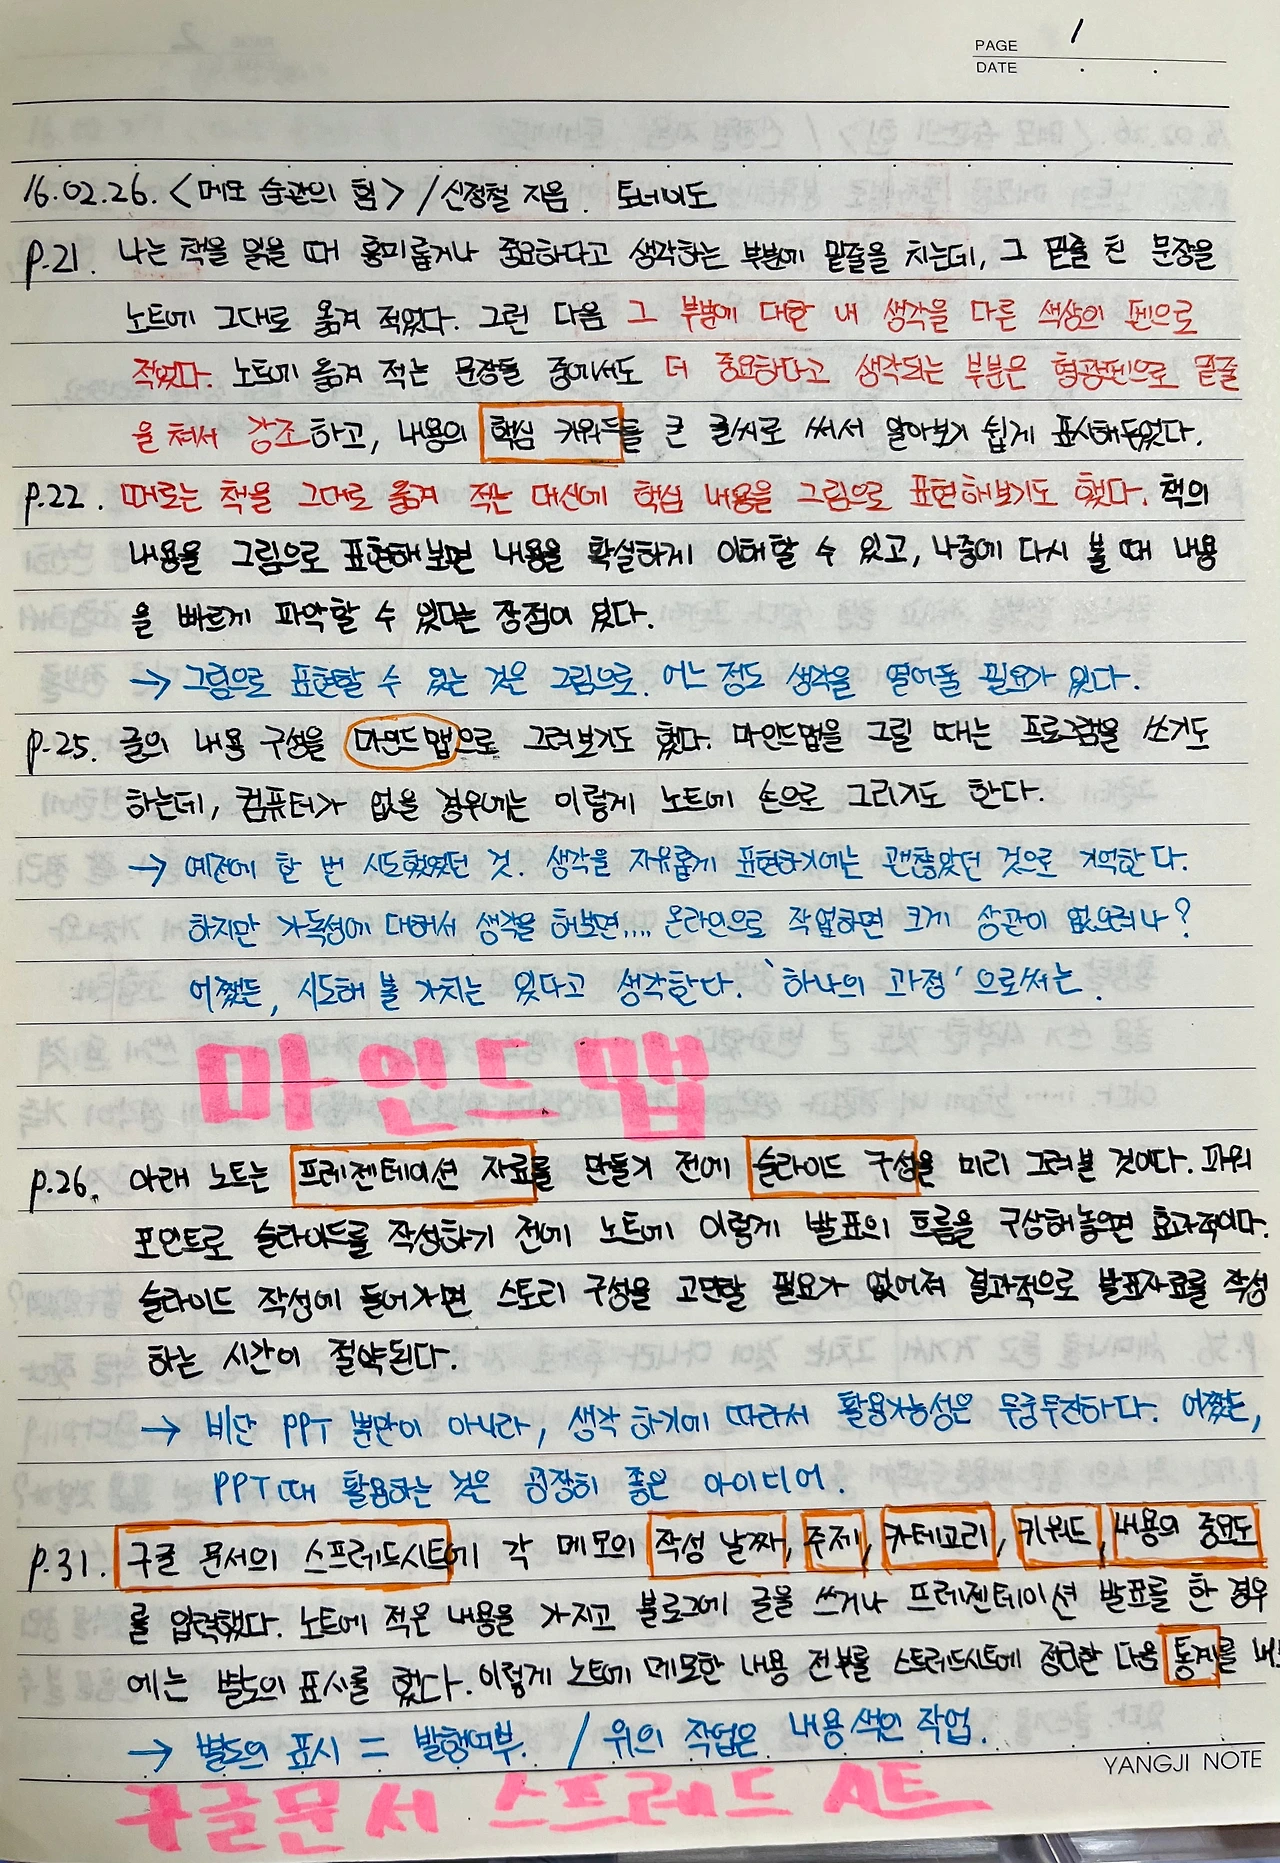 PAGE 1
DATE . .
16.02.26. <메모 습관의 힘> / 신정철 지음. 토네이도
p.21. 나는 책을 읽을 때 흥미롭거나 중요하다고 생각하는 부분에 밑줄을 치는데, 그 밑줄 친 문장을
노트에 그대로 옮겨 적었다. 그런 다음 그 부분에 대한 내 생각을 다른 색상의 펜으로
적었다. 노트에 옮겨 적는 문장들 중에서도 더 중요하다고 생각되는 부분은 형광펜으로 밑줄
을 쳐서 강조하고, 내용의 핵심 키워드를 큰 글씨로 써서 알아보기 쉽게 표시해두었다.
p.22. 때로는 책을 그대로 옮겨 적는 대신에 핵심 내용을 그림으로 표현해보기도 했다. 책의
내용을 그림으로 표현해보면 내용을 확실하게 이해할 수 있고, 나중에 다시 볼 때 내용
을 빠르게 파악할 수 있다는 장점이 있다.
→ 그림으로 표현할 수 있는 것은 그림으로. 어느 정도 생각을 열어둘 필요가 있다.
p.25. 글의 내용 구성을 마인드맵으로 그려보기도 했다. 마인드맵을 그릴 때는 프로그램을 쓰기도
하는데, 컴퓨터가 없을 경우에는 이렇게 노트에 손으로 그리기도 한다.
→ 예전에 한 번 시도했었던 것. 생각을 자유롭게 표현하기에는 괜찮았던 것으로 기억한다.
하지만 가독성에 대해서 생각을 해보면.... 온라인으로 작업하면 크게 상관이 없으려나?
어쨌든, 시도해 볼 가치는 있다고 생각한다. '하나의 과정' 으로써는.
마인드 맵
p.26. 아래 노트는 프레젠테이션 자료를 만들기 전에 슬라이드 구성을 미리 그려본 것이다. 파워
포인트로 슬라이드를 작성하기 전에 노트에 이렇게 발표의 흐름을 구상해놓으면 효과적이다.
슬라이드 작성에 들어가면 스토리 구성을 고민할 필요가 없어져 결과적으로 발표자료를 작성
하는 시간이 절약된다.
→ 비단 PPT 뿐만이 아니라, 생각 하기에 따라서 활용가능성은 무궁무진하다. 어쨌든,
PPT 때 활용하는 것은 굉장히 좋은 아이디어.
p.31. 구글 문서의 스프레드시트에 각 메모의 작성 날짜, 주제, 카테고리, 키워드, 내용의 중요도
를 입력했다. 노트에 적은 내용을 가지고 블로그에 글을 쓰거나 프레젠테이션 발표를 한 경우
에는 별도의 표시를 했다. 이렇게 노트에 메모한 내용 전부를 스프레드시트에 정리한 다음 통계를 내
→ 별도의 표시 = 발행여부. / 위의 작업은 내용 색인 작업.
YANGJI NOTE
구글문서 스프레드 시트